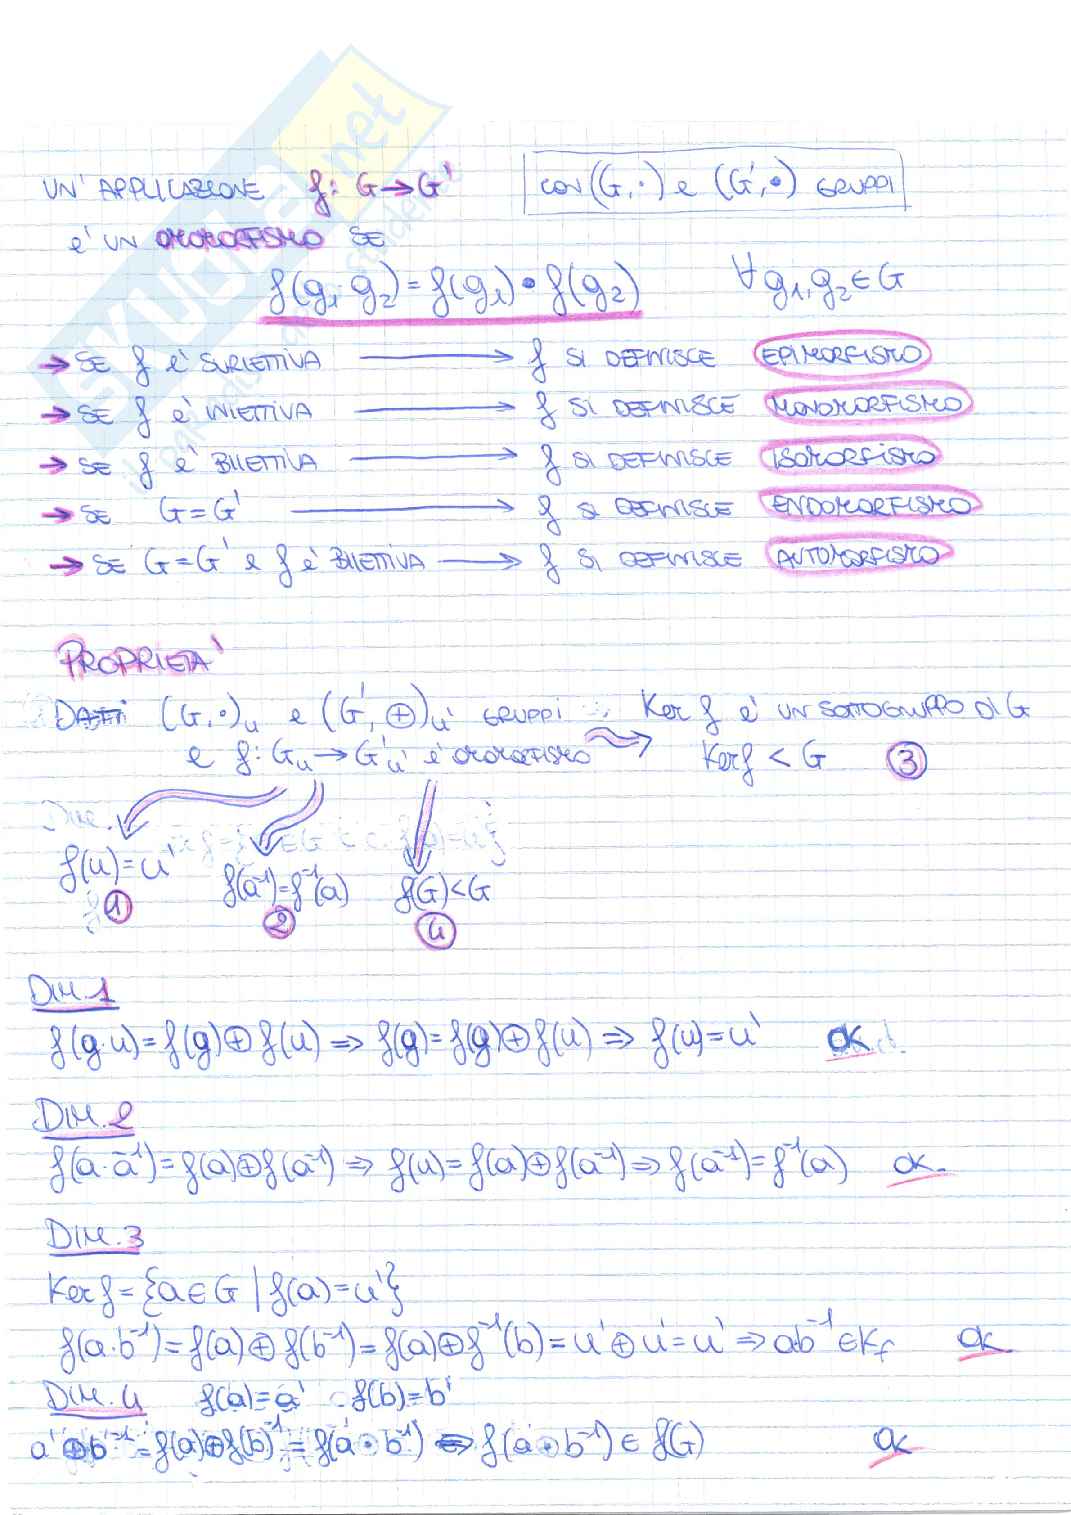 UN' APPLICAZIONE f: G→G' CON (G,·) e (G',•) GRUPPI
e' UN OMOMORFISMO SE
f(g₁·g₂)=f(g₁)•f(g₂) ∀ g₁,g₂∈G
→ SE f e' SURIETTIVA → f SI DEFINISCE EPIMORFISMO
→ SE f e' INIETTIVA → f SI DEFINISCE MONOMORFISMO
→ SE f e' BIIETTIVA → f SI DEFINISCE ISOMORFISMO
→ SE G=G' → f SI DEFINISCE ENDOMORFISMO
→ SE G=G' e f è BIIETTIVA → f SI DEFINISCE AUTOMORFISMO
PROPRIETA'
DATI (G,·)u e (G',⊕)u' GRUPPI Ker f e' UN SOTTOGRUPPO DI G
e f: Gu→G'u' è OMOMORFISMO Kerf < G 3
Dim.
f(u)=u' f(a⁻¹)=f⁻¹(a) f(G)<G
1 2 4
DIM.1
f(g·u)=f(g)⊕f(u) ⇒ f(g)=f(g)⊕f(u) ⇒ f(u)=u' OK
DIM.2
f(a·a⁻¹)=f(a)⊕f(a⁻¹) ⇒ f(u)=f(a)⊕f(a⁻¹) ⇒ f(a⁻¹)=f⁻¹(a) OK.
DIM.3
Ker f={a∈G | f(a)=u'}
f(a·b⁻¹)=f(a)⊕f(b⁻¹)=f(a)⊕f⁻¹(b)=u'⊕u'=u' ⇒ ab⁻¹∈Kf OK
DIM.4 f(a)=a' f(b)=b'
a'⊕b'⁻¹=f(a)⊕f(b)⁻¹=f(a·b⁻¹) ⇔ f(a·b⁻¹)∈f(G) OK
SKUOLA.net